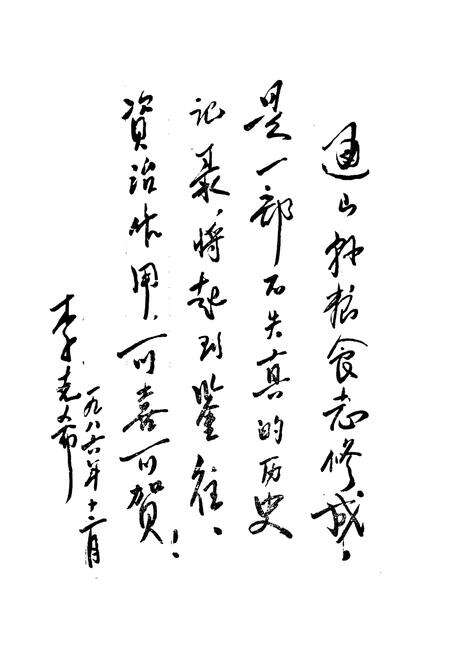 通山县粮食志修成，
是一部不失真的历史
记录，将起到鉴往、
资治作用，可喜可贺！
李克
一九八六年十二月